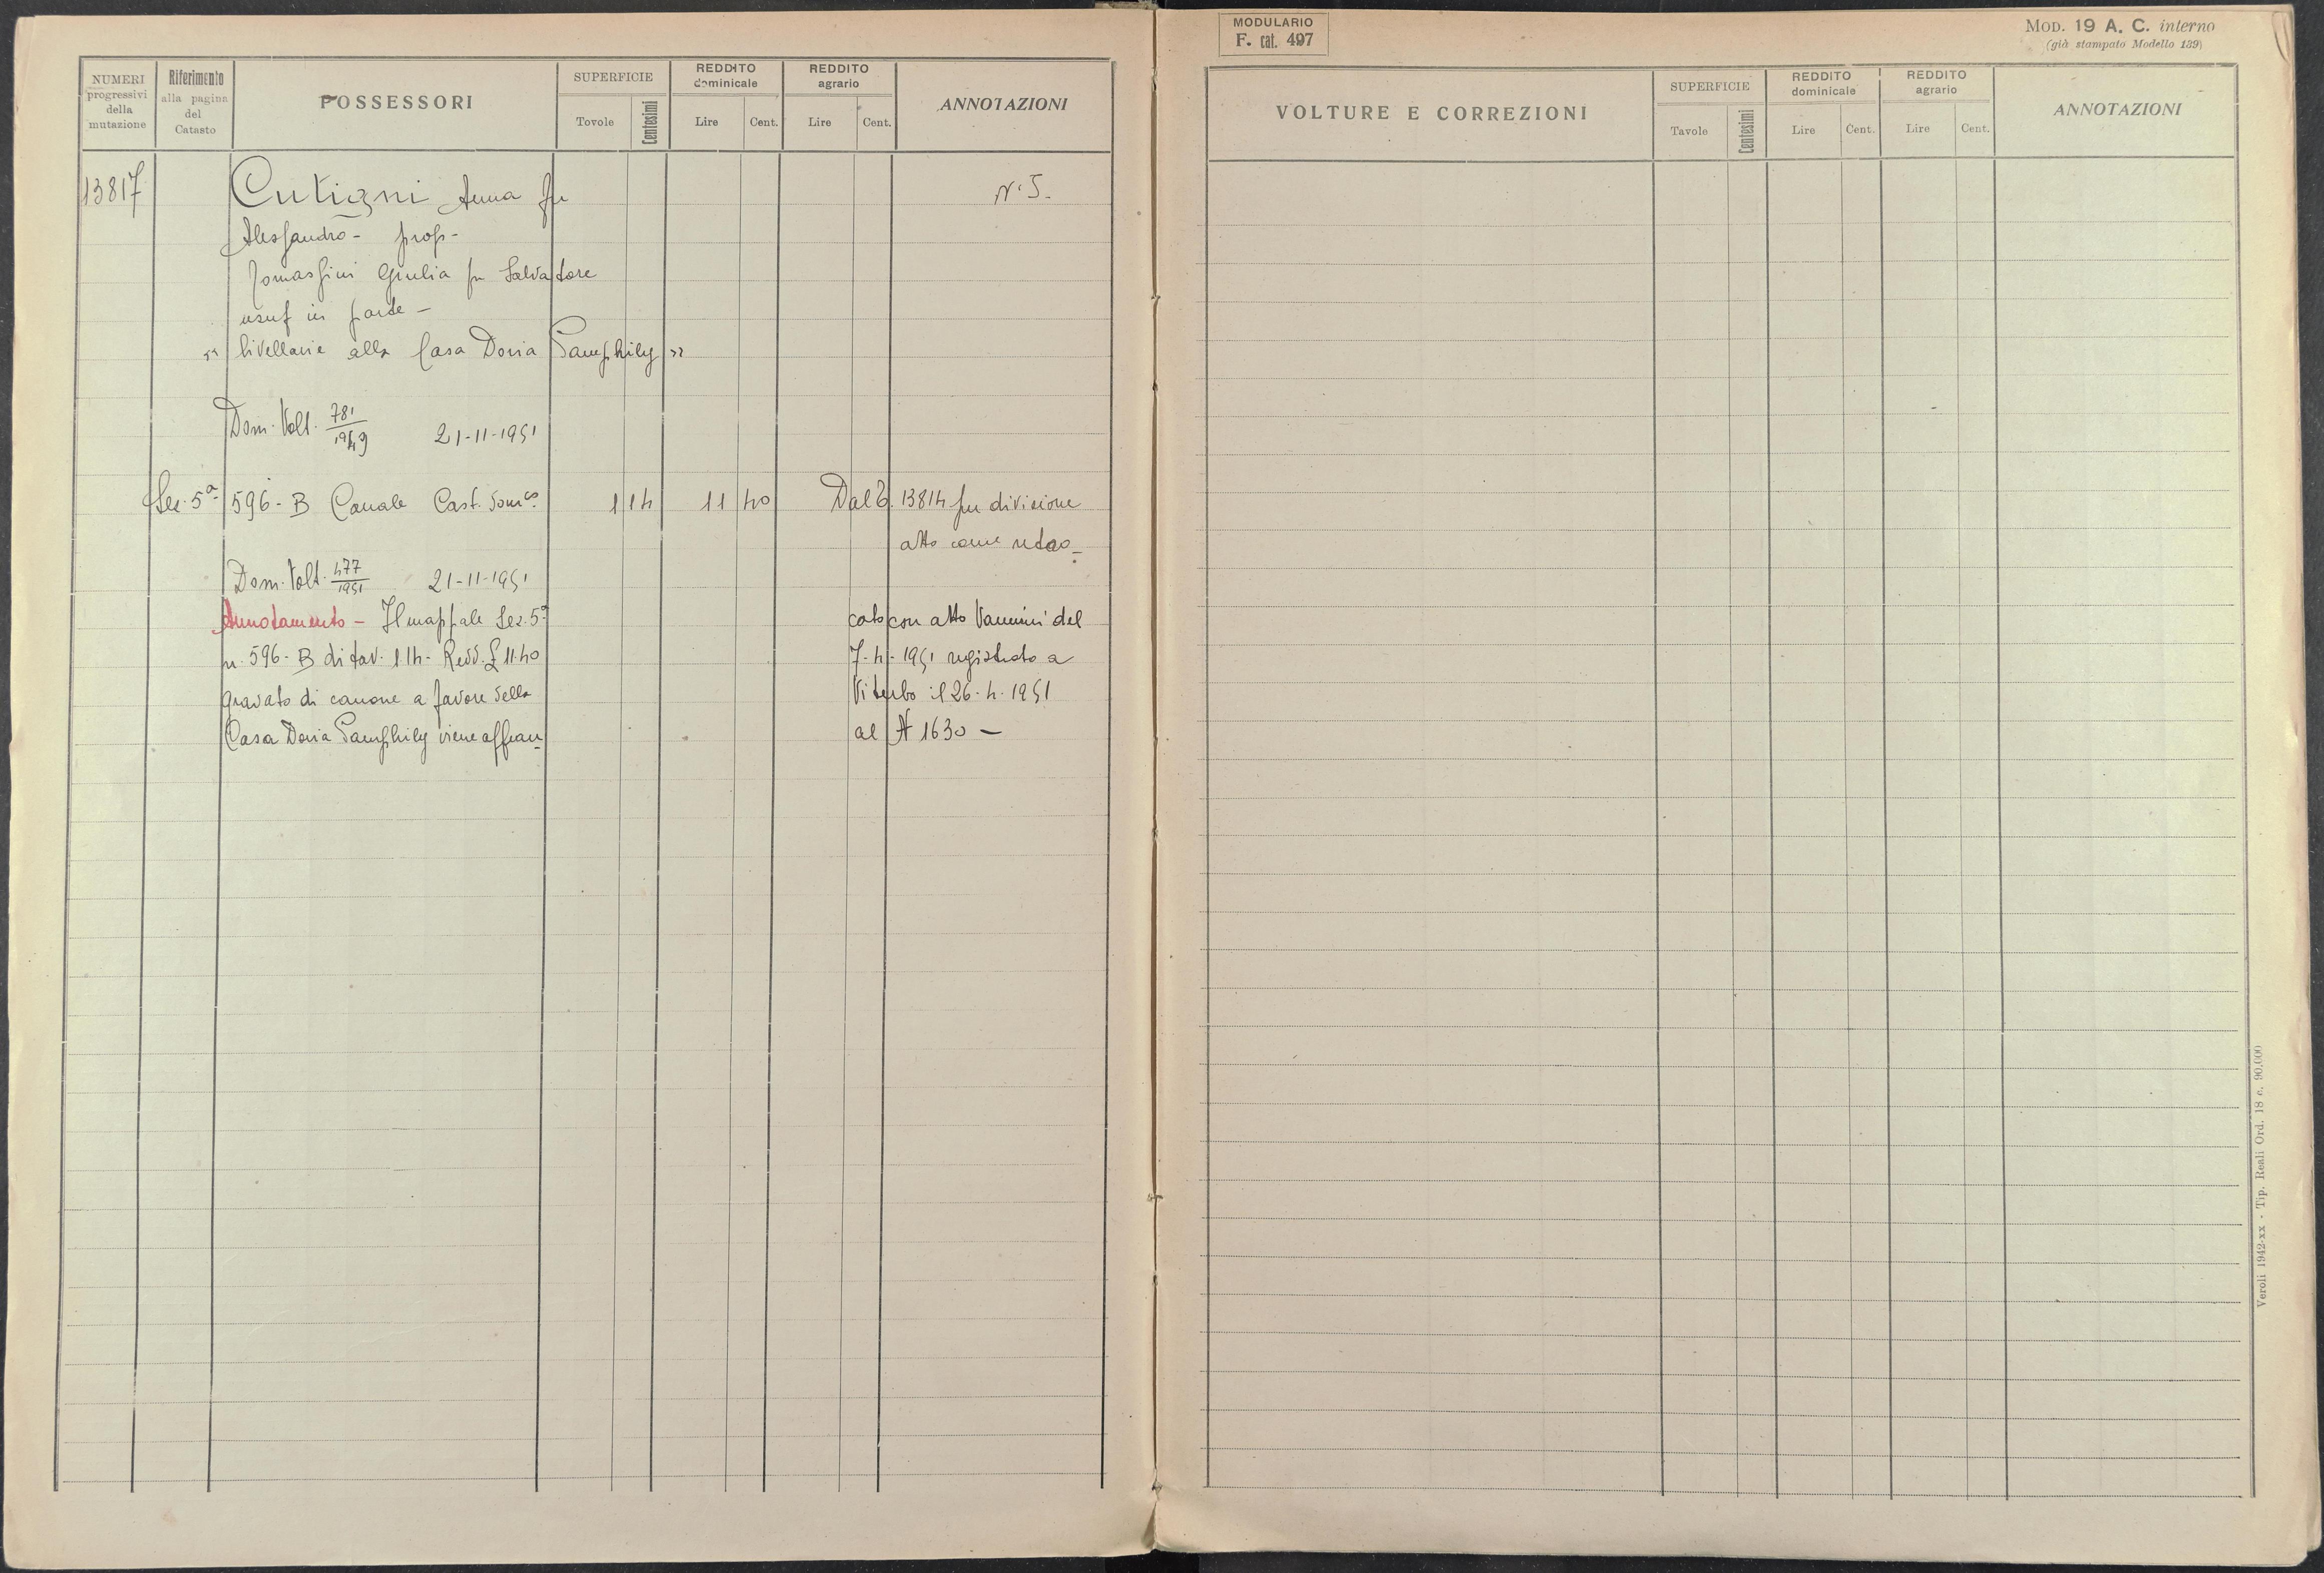 NUMERI progressivi della mutazione
Riferimento alla pagina del Catasto
POSSESSORI
SUPERFICIE
Tovole
Centesimi
REDDITO dominicale
Lire
Cent.
REDDITO agrario
Lire
Cent.
ANNOTAZIONI
13817
Cutigni Anna fu
N. 5.
Alessandro - prop -
Tomassini Giulia fu Salvatore
usuf in parte -
" livellarie alla Casa Doria Pamphily "
Dom. Volt. 781/1949 21-11-1951
Sez. 5ª 596 - B Canale Cast. 1 14 11 40 Dal 13814 per divisione
atto come retro
Dom. Volt. 477/1951 21-11-1951
Annotamento - Il mappale Sez. 5ª
n. 596 - B di tav. 1.14 - Redd. £ 11.40
gravato di canone a favore della
Casa Doria Pamphily viene affran-
cato con atto Vannini del
7-4-1951 registrato a
Viterbo il 26-4-1951
al N 1630 -
MODULARIO
F. cat. 497
MOD. 19 A. C. interno
(già stampato Modello 139)
VOLTURE E CORREZIONI
SUPERFICIE
Tavole
Centesimi
REDDITO dominicale
Lire
Cent.
REDDITO agrario
Lire
Cent.
ANNOTAZIONI
Veroli 1942-XX - Tip. Reali Ord. 18 c. 90.000